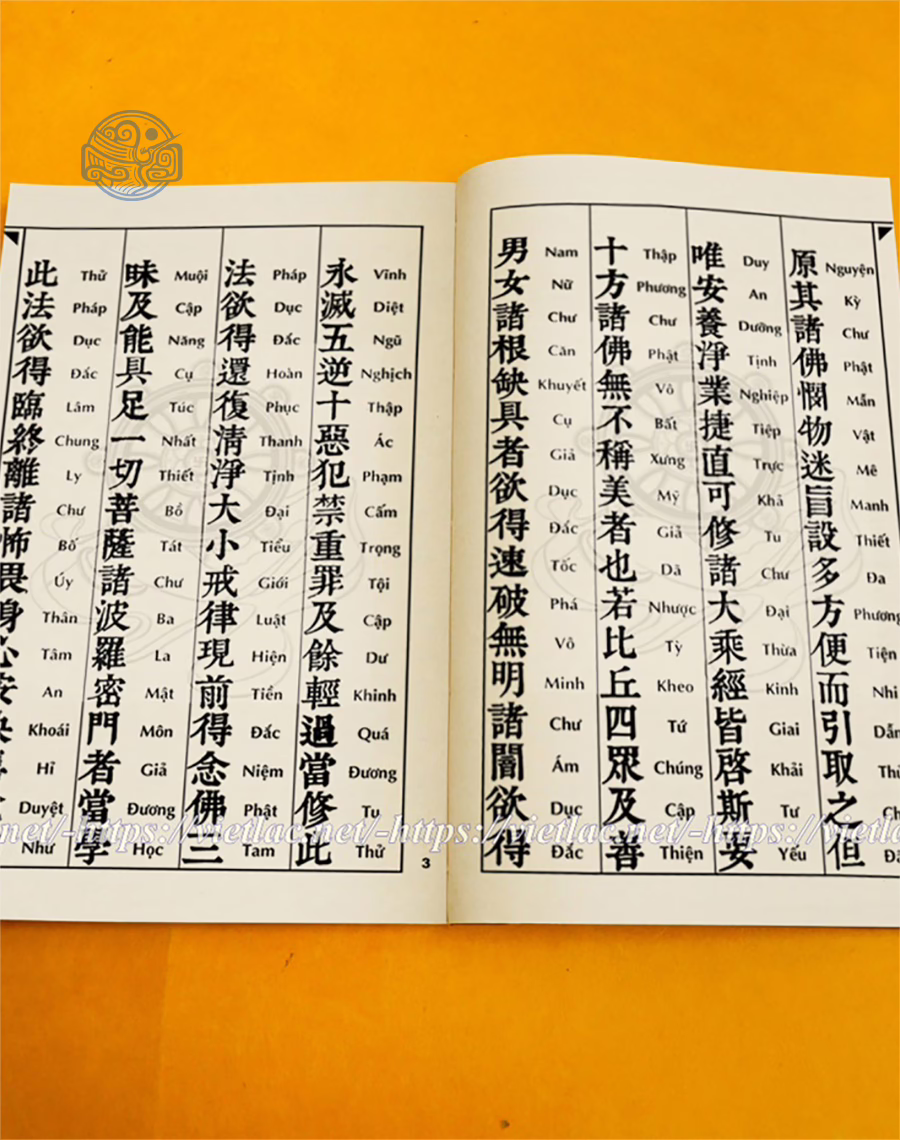 原其諸佛憫物迷盲設多方便而引取之但
Nguyện Kỳ Chư Phật Mẫn Vật Mê Manh Thiết Đa Phương Tiện Nhi Dẫn
唯安養淨業捷直可修諸大乘經皆啓斯要
Duy An Dưỡng Tịnh Nghiệp Tiệp Trực Khả Tu Chư Đại Thừa Kinh Giai Khải Tư Yếu
十方諸佛無不稱美者也若比丘四眾及善
Thập Phương Chư Phật Vô Bất Xưng Mỹ Giả Dã Nhược Tỳ Kheo Tứ Chúng Cập Thiện
男女諸根缺具者欲得速破無明諸闇欲得
Nam Nữ Chư Căn Khuyết Cụ Giả Dục Đắc Tốc Phá Vô Minh Chư Ám Dục Đắc
永滅五逆十惡犯禁重罪及餘輕過當修此
Vĩnh Diệt Ngũ Nghịch Thập Ác Phạm Cấm Trọng Tội Cập Dư Khinh Quá Đương Tu Thử
法欲得還復清淨大小戒律現前得念佛三
Pháp Dục Đắc Hoàn Phục Thanh Tịnh Đại Tiểu Giới Luật Hiện Tiền Đắc Niệm Phật Tam
昧及能具足一切菩薩諸波羅密門者當學
Muội Cập Năng Cụ Túc Nhất Thiết Bồ Tát Chư Ba La Mật Môn Giả Đương Học
此法欲得臨終離諸怖畏身心安
Thử Pháp Dục Đắc Lâm Chung Ly Chư Bố Úy Thân Tâm An Khoái Hỉ Duyệt Như
3
.net/-https://vietlac.net/-https://vietlac.net/-https://vietlac